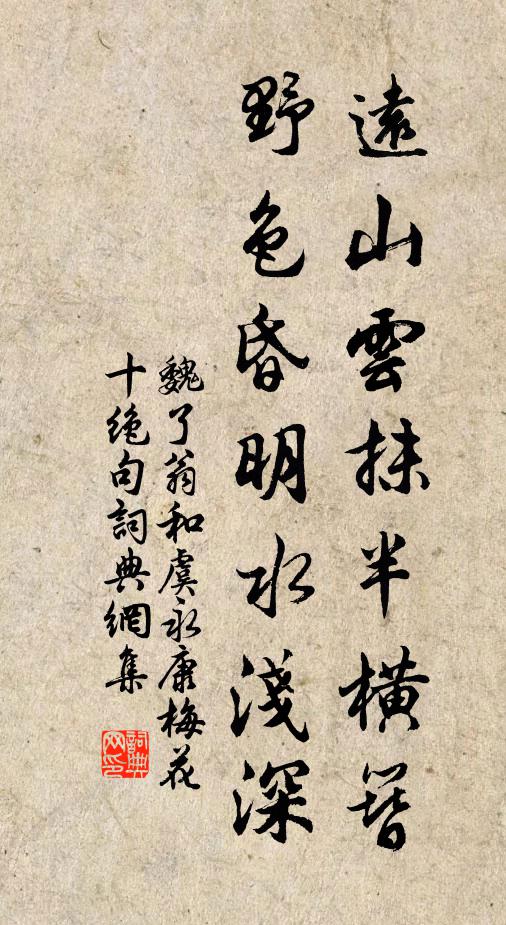 遠山雲抹半橫簪
野色昏明水淺深
魏了翁和虞永康梅花
十絶句詞典網集
詞典
网印